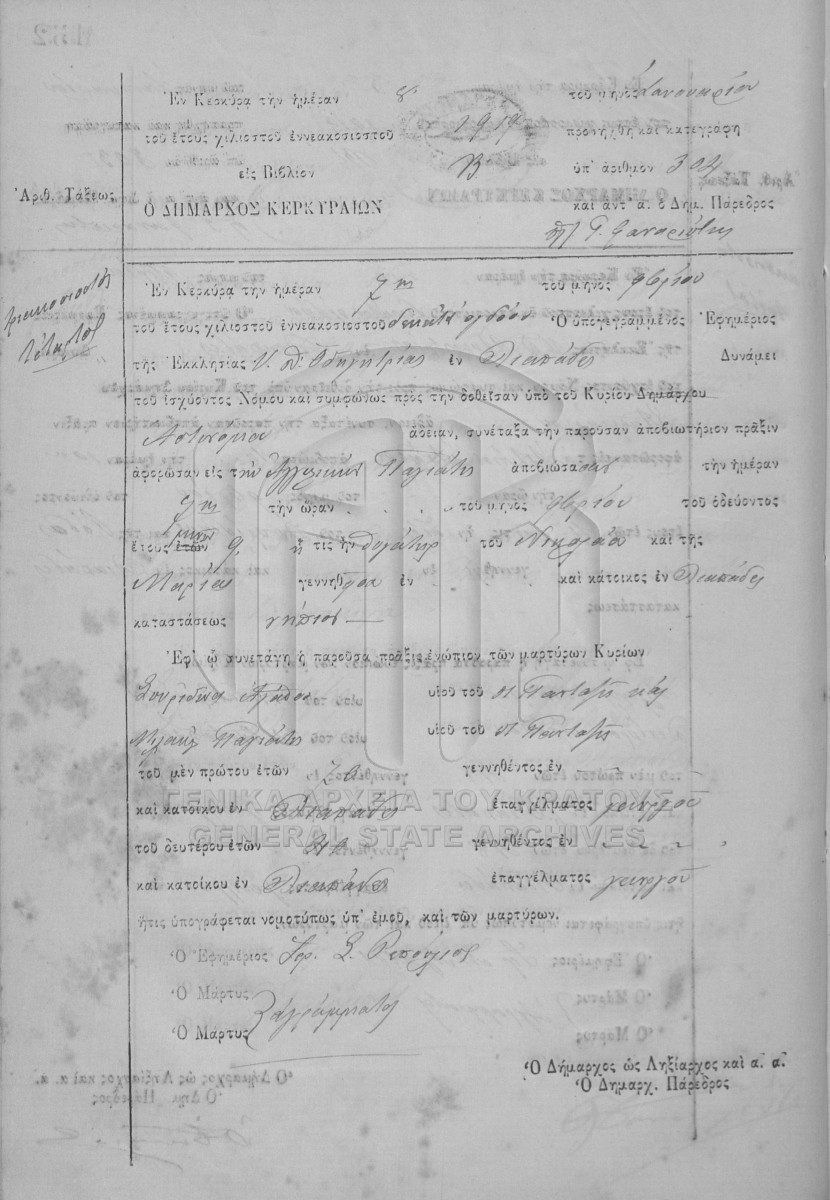 Ἐν Κερκύρᾳ τὴν ἡμέραν 8 τοῦ μηνὸς Ἰανουαρίου
τοῦ ἔτους χιλιοστοῦ ἐννεακοσιοστοῦ 1919 προσήχθη καὶ κατεγράφη
εἰς Βιβλίον Β ὑπ' ἀριθμὸν 304
Ἀριθ. Τάξεως
Ὁ ΔΗΜΑΡΧΟΣ ΚΕΡΚΥΡΑΙΩΝ καὶ ἀντ' α. ὁ Δημ. Πάρεδρος
τριακοσιοστός
τέταρτος
Ἐν Κερκύρᾳ τὴν ἡμέραν 7 τοῦ μηνὸς 9βρίου
τοῦ ἔτους χιλιοστοῦ ἐννεακοσιοστοῦ δεκάτου ὀγδόου Ὁ ὑπογεγραμμένος Ἐφημέριος
τῆς Ἐκκλησίας Υ. Θ. Ὁδηγητρίας ἐν Λιαπάδες Δυνάμει
τοῦ ἰσχύοντος Νόμου καὶ συμφώνως πρὸς τὴν δοθεῖσαν ὑπὸ τοῦ Κυρίου Δημάρχου
Ἀστυνόμου ἄδειαν, συνέταξα τὴν παροῦσαν ἀποβιωτήριον πρᾶξιν
ἀφορῶσαν εἰς τὴν Ἀγγελικὴν ἀποβιώσασαν τὴν ἡμέραν
7 τὴν ὥραν τοῦ μηνὸς 9βρίου τοῦ ὁδεύοντος
μηνῶν
ἔτους ἐτῶν 9 ἥ τις ἦν θυγάτηρ τοῦ Νικολάου καὶ τῆς
Μαρίας γεννηθεῖσα ἐν καὶ κάτοικος ἐν Λιαπάδες
καταστάσεως νήπιον
Ἐφ' ᾧ συνετάγη ἡ παροῦσα πρᾶξις ἐνώπιον τῶν μαρτύρων Κυρίων
Σπυρίδων υἱοῦ τοῦ Πανταζῆ καὶ
υἱοῦ τοῦ Πανταζῆ
τοῦ μὲν πρώτου ἐτῶν γεννηθέντος ἐν
καὶ κατοίκου ἐν Λιαπάδες ἐπαγγέλματος γεωργοῦ
τοῦ δευτέρου ἐτῶν γεννηθέντος ἐν
καὶ κατοίκου ἐν Λιαπάδες ἐπαγγέλματος γεωργοῦ
ἥτις ὑπογράφεται νομοτύπως ὑπ' ἐμοῦ, καὶ τῶν μαρτύρων.
Ὁ Ἐφημέριος Ἱερ. Σ.
Ὁ Μάρτυς
ἀγράμματοι
Ὁ Μάρτυς
Ὁ Δήμαρχος ὡς Ληξίαρχος καὶ α. α.
Ὁ Δημαρχ. Πάρεδρος
ΓΕΝΙΚΑ ΑΡΧΕΙΑ ΤΟΥ ΚΡΑΤΟΥΣ
GENERAL STATE ARCHIVES